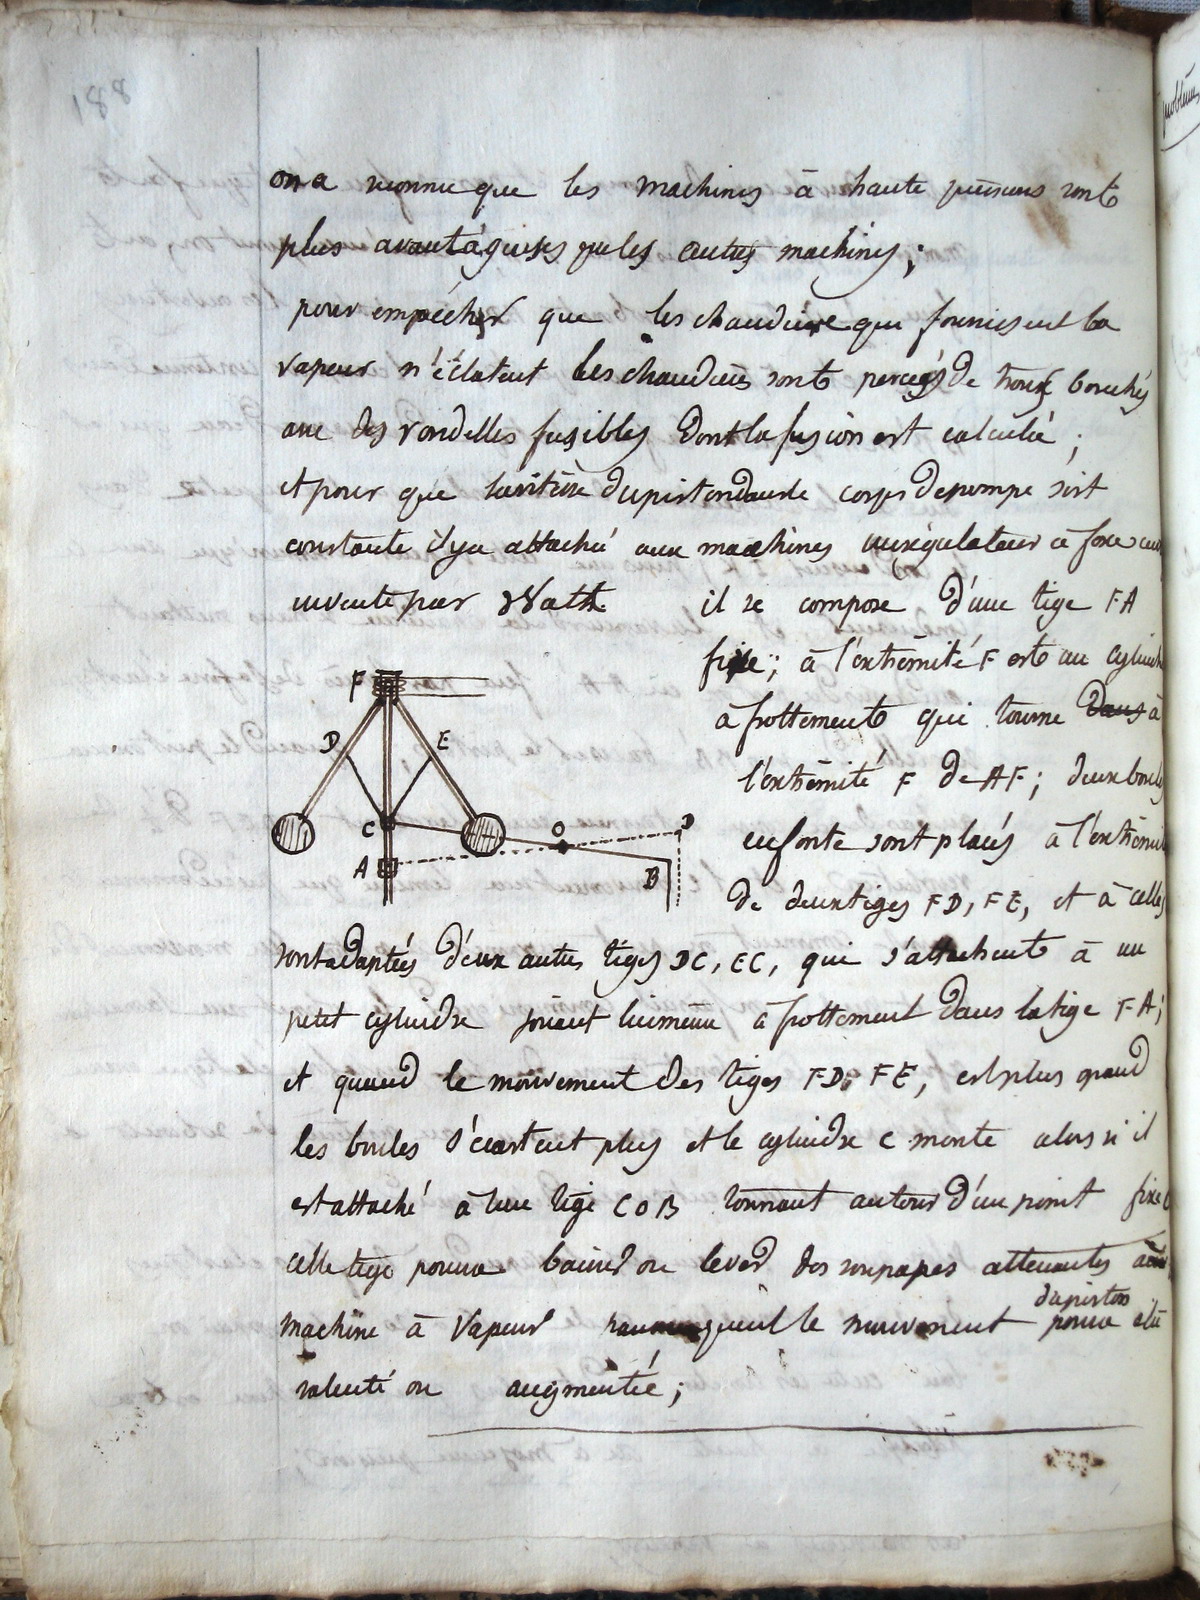 on a reconnu que les machines à haute pression sont
plus avantageuses que les autres machines;
pour empêcher que les chaudière que fournissent la
vapeur n'éclatent les chaudières sont percées de trous bouchés
avec des rondelles fusibles dont la fusion est calculée;
et pour que la vitesse du piston dans le corps de pompe soit
constante il y a attaché aux machines un régulateur à force
inventé par Wath.
il se compose d'une tige FA
fixe; à l'extrémité F est un cylindre
à frottement qui tourne dans à
l'extrémité F de AF; deux boules
en fonte sont placés à l'extrémité
de deux tiges FD, FE, et à celles
F
D
E
C
O
D
A
B
sont adaptés deux autres tiges DC, EC, qui s'attachent à un
petit cylindre jouant lui même à frottement dans la tige FA;
et quand le mouvement des tiges FD, FE, est plus grand
les boules s'écartent plus et le cylindre C monte alors si il
est attaché à une tige COB tournant autour d'un point fixe O
cette tige pourra baisser ou lever des soupapes attenantes
machine à vapeur le mouvement du piston pourra être
ralenti ou augmentée;
188
problème